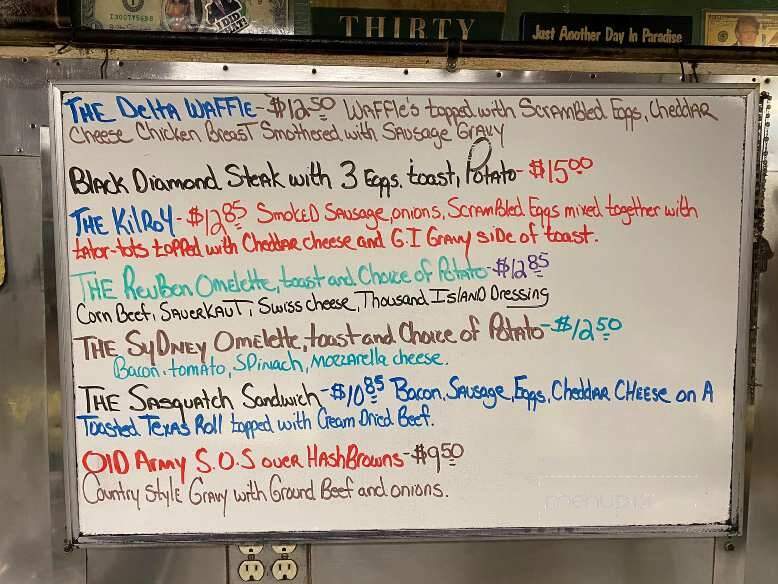 I30075696B
I DID
THIRTY
Just Another Day In Paradise
THE Delta WAFFlE-$12.50 WAFFle's topped with ScrAmbled Eggs, CheddAR
Cheese Chicken BreAsT Smothered with SAusage GrAvy
BlAck DiAmond SteAk with 3 Eggs. toast, PotAto- $15.00
THE KilRoy-$12.85 SmokED SAusage, onions, ScrAmBled Eggs mixed together with
tAtor-tots topped with CheddAR cheese and G.I GrAvy side of toast.
THE ReuBen Omelette, toast and Choice of PotAto-$12.85
Corn Beef, SAuerKAuT, Swiss cheese, Thousand IslAND Dressing
THE SyDNEy Omelette, toast and Choice of PotAto-$12.50
Bacon. tomAto, SPinach, mozzArella cheese.
THE SAsquAtch SAndwich-$10.85 BAcon, SAusage, Eggs, CheddAR CHeese on A
ToAsted TexAs Roll topped with CreAm Dried Beef.
OlD ArmY S.O.S over HAshBrowns-$9.50
Country style GrAvy with Ground Beef and onions.